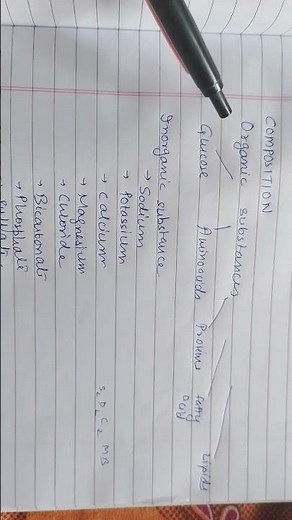 COMPOSITION
Organic substances
Glucose Aminoacids Proteins fatty acid Lipids
Inorganic substance
→ Sodium
→ Potassium
→ Calcium
→ Magnesium
→ Chloride
→ Bicarbonate
→ Phosphate